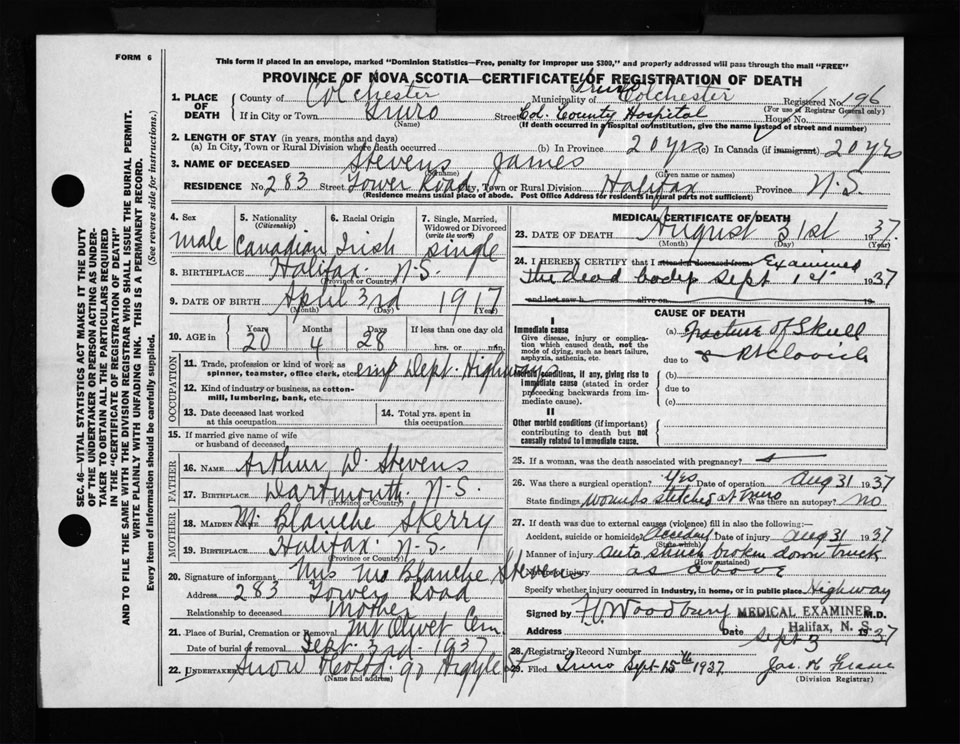 FORM 6
This form if placed in an envelope, marked "Dominion Statistics—Free, penalty for improper use $300," and properly addressed will pass through the mail "FREE"
PROVINCE OF NOVA SCOTIA—CERTIFICATE OF REGISTRATION OF DEATH
1. PLACE OF DEATH
County of Colchester Municipality of Truro Colchester Registered No. 196
(For use of Registrar General only)
If in City or Town Truro Street Col. County Hospital House No.
(Name) (If death occurred in a hospital or institution, give the name instead of street and number)
2. LENGTH OF STAY (in years, months and days)
(a) In City, Town or Rural Division where death occurred (b) In Province 20 yrs (c) In Canada (if immigrant) 20 yrs
3. NAME OF DECEASED Stevens James
(Surname) (Given name or names)
RESIDENCE No. 283 Street Tower Road City, Town or Rural Division Halifax Province N.S.
(Residence means usual place of abode. Post Office Address for residents in rural parts not sufficient)
4. Sex male
5. Nationality (Citizenship) Canadian
6. Racial Origin Irish
7. Single, Married, Widowed or Divorced (write the word) Single
8. BIRTHPLACE Halifax N.S.
(Province or Country)
9. DATE OF BIRTH April 3rd 1917
(Month) (Day) (Year)
10. AGE in Years 20 Months 4 Days 28 If less than one day old hrs. or min.
OCCUPATION
11. Trade, profession or kind of work as spinner, teamster, office clerk, etc. emp Dept. Highways
12. Kind of industry or business, as cotton-mill, lumbering, bank, etc.
13. Date deceased last worked at this occupation
14. Total yrs. spent in this occupation
15. If married give name of wife or husband of deceased
FATHER
16. NAME Arthur D. Stevens
17. BIRTHPLACE Dartmouth N.S.
(Province or Country)
MOTHER
18. MAIDEN NAME M. Blanche Skerry
19. BIRTHPLACE Halifax N.S.
(Province or Country)
20. Signature of informant Mrs Blanche Stevens
Address 283 Tower Road
Relationship to deceased mother
21. Place of Burial, Cremation or Removal Mt Olivet Cem
Date of burial or removal Sept. 3rd 1937
22. Undertaker Snow 90 Argyle
(Name and address)
MEDICAL CERTIFICATE OF DEATH
23. DATE OF DEATH August 31st 1937
(Month) (Day) (Year)
24. I HEREBY CERTIFY that I attended deceased from Examined
the dead body Sept 1st 1937
and last saw h alive on 19
CAUSE OF DEATH
I
Immediate cause
Give disease, injury or complication which caused death, not the mode of dying, such as heart failure, asphyxia, asthenia, etc.
(a) Fracture of Skull
due to & Rt Clavicle
Morbid conditions, if any, giving rise to immediate cause (stated in order preceeding backwards from immediate cause).
(b)
due to
(c)
II
Other morbid conditions (if important) contributing to death but not causally related to immediate cause.
25. If a woman, was the death associated with pregnancy?
26. Was there a surgical operation? Yes Date of operation Aug 31 1937
State findings wounds stitched at Truro Was there an autopsy? no
27. If death was due to external causes (violence) fill in also the following:—
Accident, suicide or homicide? Accident Date of injury Aug 31 1937
(State which)
Manner of injury auto struck broken down truck
(How sustained)
Nature of injury as above
Specify whether injury occurred in Industry, in home, or in public place Highway
Signed by Woodbury MEDICAL EXAMINER M.D.
Halifax, N. S.
Address Date Sept 3 1937
28. Registrar's Record Number
29. Filed Truro Sept 15th 1937 Jas. H. Fraser
(Division Registrar)
SEC. 46—VITAL STATISTICS ACT MAKES IT THE DUTY
OF THE UNDERTAKER OR PERSON ACTING AS UNDERTAKER TO OBTAIN ALL THE PARTICULARS REQUIRED
IN THE "CERTIFICATE OF REGISTRATION OF DEATH"
AND TO FILE THE SAME WITH THE DIVISION REGISTRAR WHO SHALL ISSUE THE BURIAL PERMIT.
WRITE PLAINLY WITH UNFADING INK. THIS IS A PERMANENT RECORD.
Every item of information should be carefully supplied. (See reverse side for instructions.)